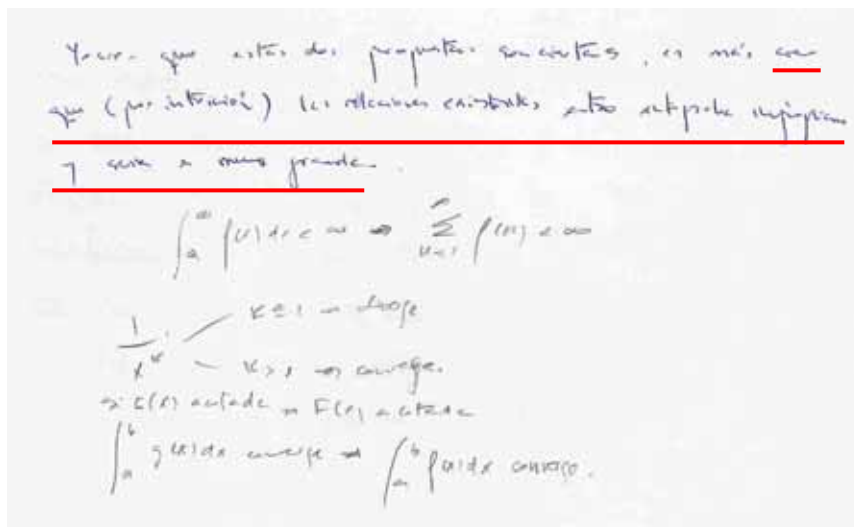 Yo creo que estas dos propuestas son ciertas, es más creo
que (por intuición) las relaciones existentes entre integrales impropias
y series es muy grande.
∫_a^∞ f(x)dx < ∞ → ∑_{n=1}^∞ f(n) < ∞
1/x^α : α ≤ 1 → diverge
α > 1 → converge.
→ G(x) acotada → F(x) acotada
∫_a^b g(x)dx converge → ∫_a^b f(x)dx converge.